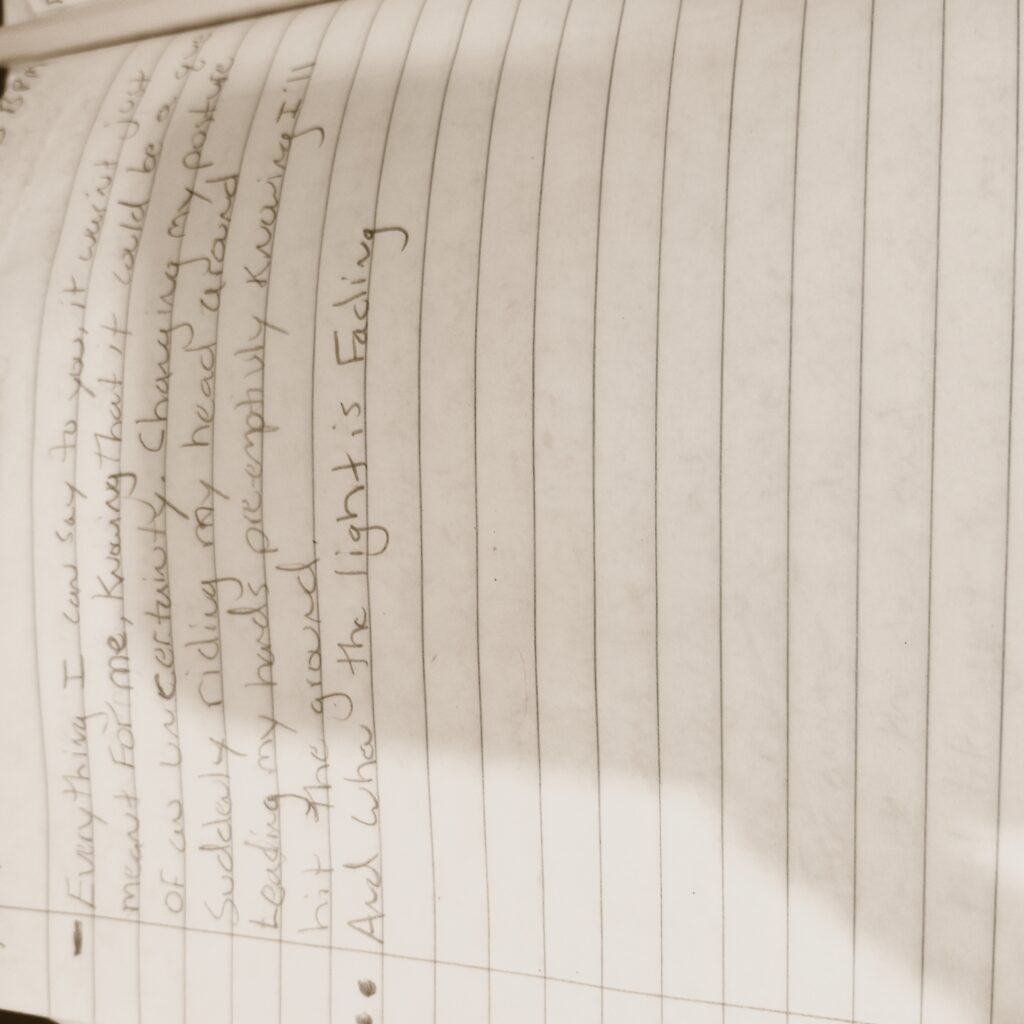 Everything I can say to you, it wasint just
meant For me, Knowing that it could be a
OF an uncertainty. Changing my posture
Suddenly riding my head around
Leading my hands preemptivly Knowing I'll
hit the ground.
And when the light is Fading